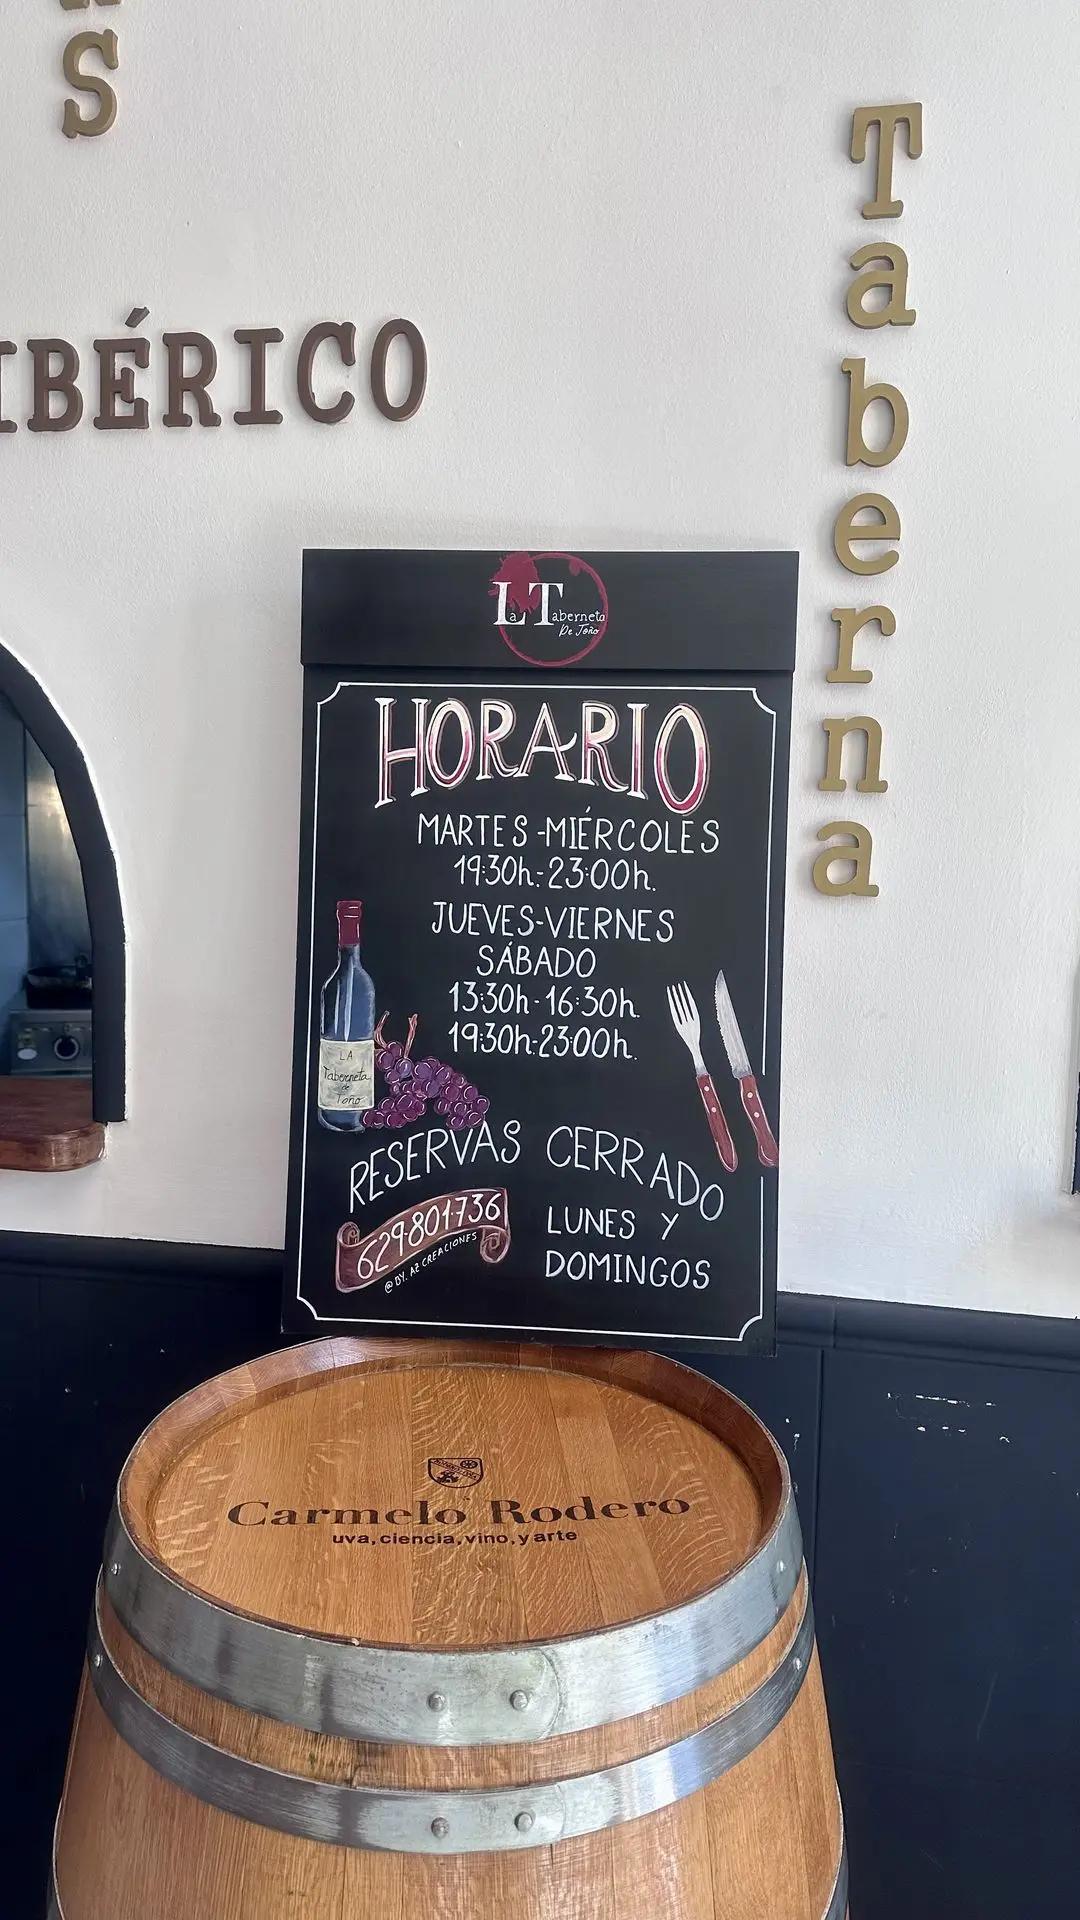 S
IBÉRICO
Taberna
La Taberneta
De Toño
HORARIO
MARTES-MIÉRCOLES
19:30h.-23:00h.
JUEVES-VIERNES
SÁBADO
13:30h-16:30h.
19:30h-23:00h.
LA
Taberneta
de
Toño
RESERVAS
629·801·736
@BY. AZ CREACIONES
CERRADO
LUNES Y
DOMINGOS
Carmelo Rodero
uva,ciencia,vino,y arte